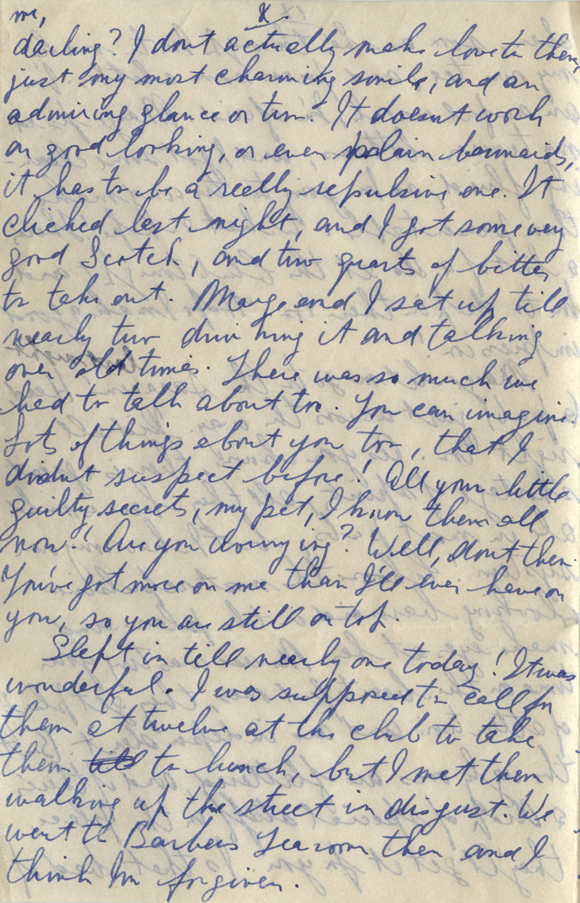 X.
me,
darling? I dont actually make love to them,
just my most charming smile, and an
admiring glance or two. It doesnt work
on good looking, or even plain barmaids,
it has to be a really repulsive one. It
clicked last night, and I got some very
good Scotch, and two quarts of bitter
to take out. Marge and I sat up till
nearly two drinking it and talking
over old times. There was so much we
had to talk about too. You can imagine.
Lots of things about you too, that I
didnt suspect before! All your little
guilty secrets, my pet, I know them all
now! Are you worrying? Well, dont then.
You've got more on me than I'll ever have on
you, so you are still on top.
Slept in till nearly one today! It was
wonderful. I was supposed to call for
them at twelve at the club to take
them to lunch, but I met them
walking up the street in disgust. We
went to Barbers Tearoom then and I
think Im forgiven.